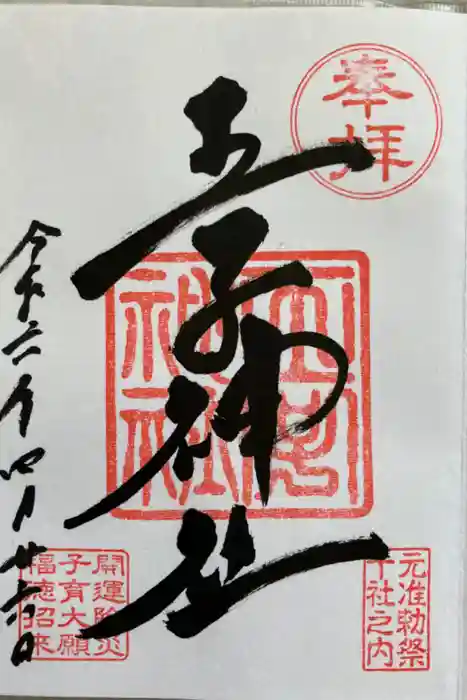 奉拝
王子神社
王子
神社
元准勅祭
十社之内
令和六年四月廿六日
開運除災
子育大願
福徳招来